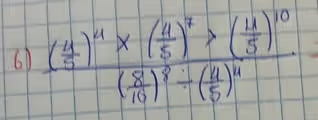 6) (4/5)^4 × (4/5)^7 > (4/5)^10
(8/10)^8 ÷ (4/5)^4